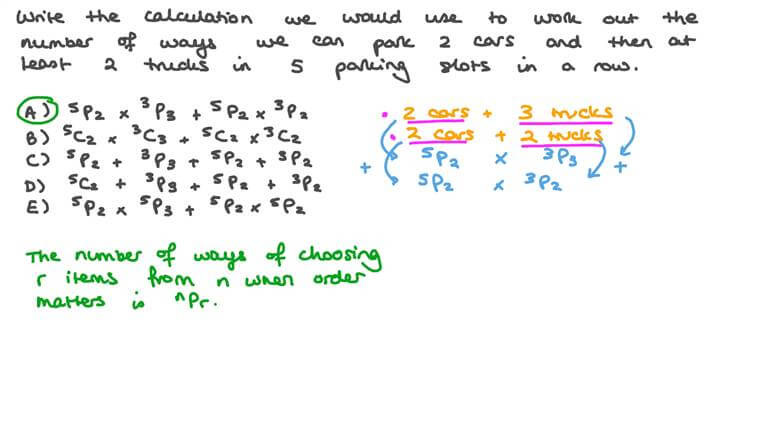 Write the calculation we would use to work out the
number of ways we can park 2 cars and then at
least 2 trucks in 5 parking slots in a row.
A) ⁵P₂ × ³P₃ + ⁵P₂ × ³P₂
B) ⁵C₂ × ³C₃ + ⁵C₂ × ³C₂
C) ⁵P₂ + ³P₃ + ⁵P₂ + ³P₂
D) ⁵C₂ + ³P₃ + ⁵P₂ + ³P₂
E) ⁵P₂ × ⁵P₃ + ⁵P₂ × ⁵P₂
• 2 cars + 3 trucks
• 2 cars + 2 trucks
⁵P₂ × ³P₃
+ +
⁵P₂ × ³P₂
The number of ways of choosing
r items from n when order
matters is ⁿPr.